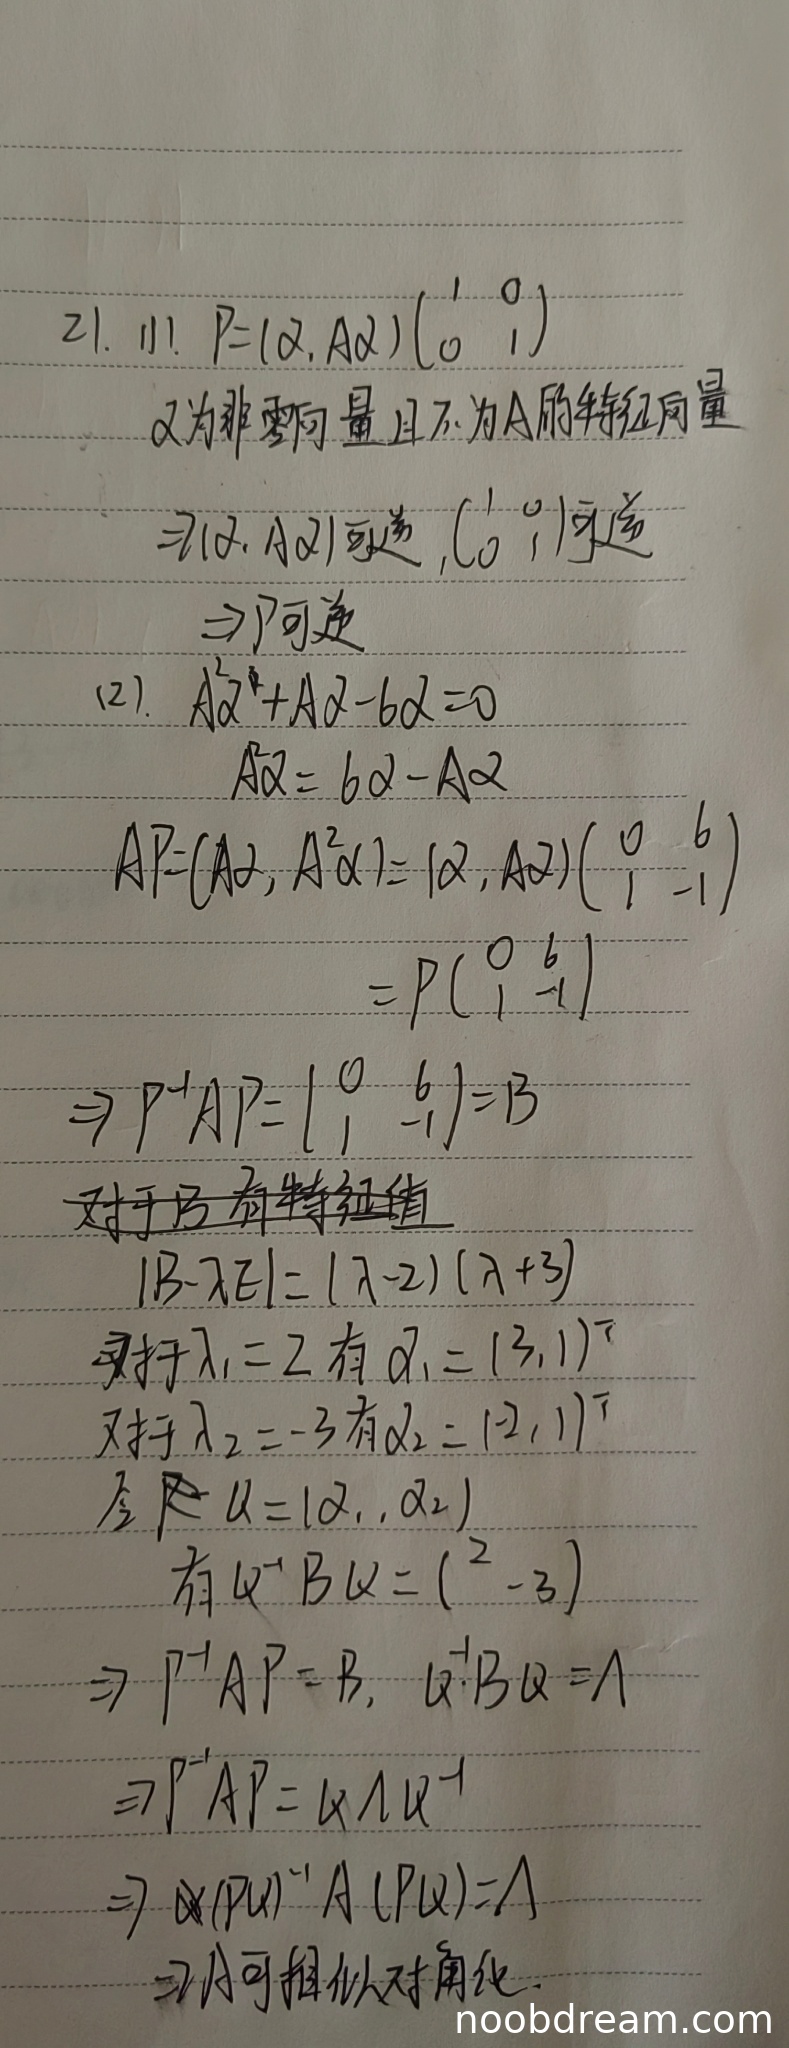 21. (1). P=(α, Aα)(1 0
0 1)
α为非零向量且不为A的特征向量
⇒(α, Aα)可逆, (1 0
0 1)可逆
⇒P可逆
(2). A²α+Aα-6α=0
A²α=6α-Aα
AP=(Aα, A²α)=(α, Aα)(0 6
1 -1)
=P(0 6
1 -1)
⇒P⁻¹AP=(0 6
1 -1)=B
对于B有特征值
|B-λE|=(λ-2)(λ+3)
对于λ₁=2有α₁=(3,1)ᵀ
对于λ₂=-3有α₂=(-2,1)ᵀ
令Q=(α₁, α₂)
有Q⁻¹BQ=(2
-3)
⇒P⁻¹AP=B, Q⁻¹BQ=Λ
⇒P⁻¹AP=QΛQ⁻¹
⇒(PQ)⁻¹A(PQ)=Λ
⇒A可相似对角化.
noobdream.com